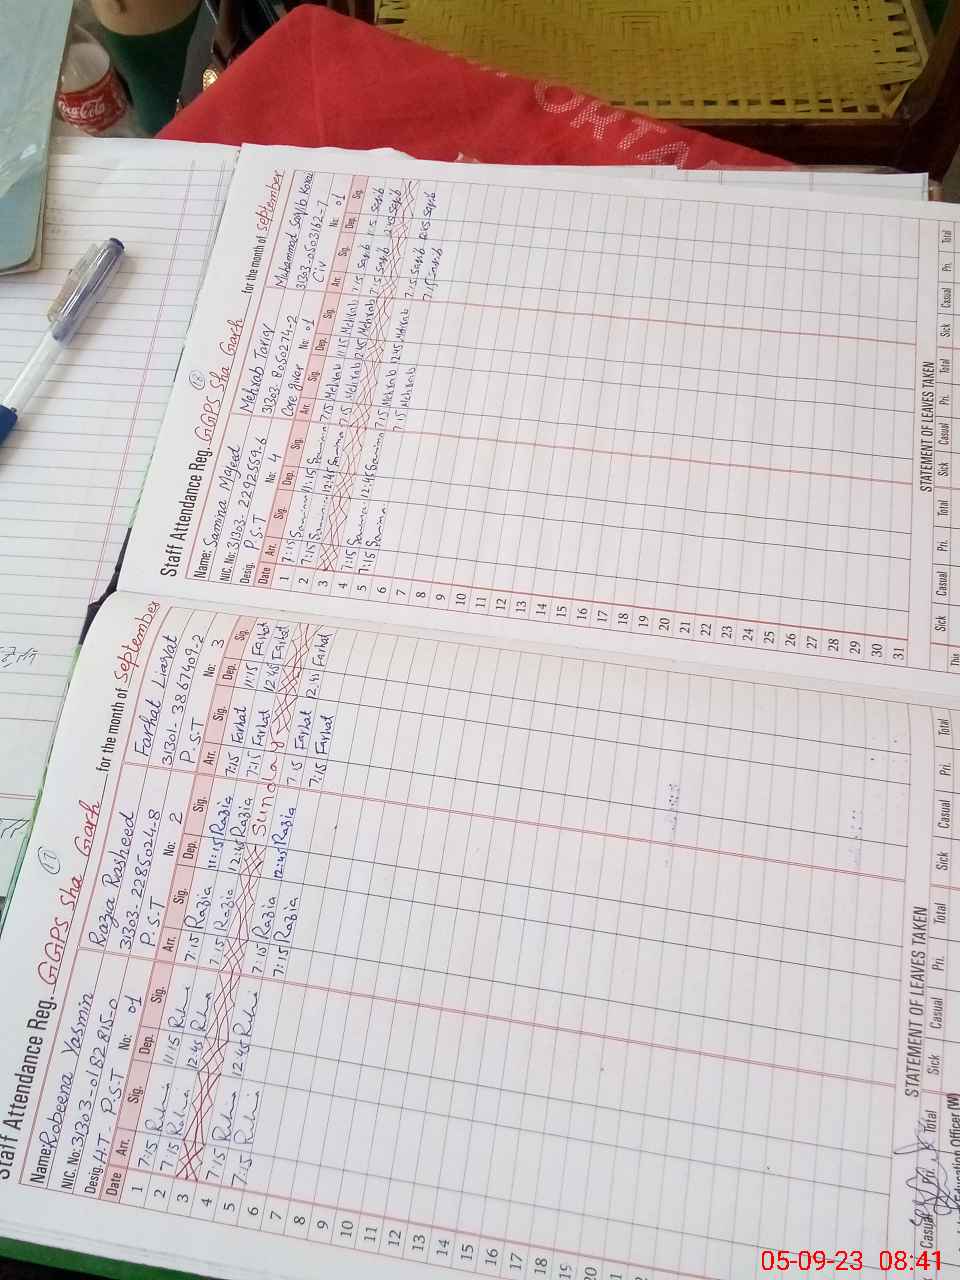 Coca-Cola
ORTA
Staff Attendance Reg. GGPS Sha Garh for the month of September
17
Name: Robeena Yasmin Razia Rasheed Farhat Liaqat
NIC. No: 31303-0182815-0 31303-2285024-8 31301-3867409-2
Desig. H.T - P.S.T No: 01 P.S.T No: 2 P.S.T No: 3
Date Arr. Sig. Dep. Sig. Arr. Sig. Dep. Sig. Arr. Sig. Dep. Sig.
1 7:15 11:15 7:15 Razia 11:15 Razia 7:15 Farhat 11:15 Farhat
2 7:15 12:45 7:15 Razia 12:45 Razia 7:15 Farhat 12:45 Farhat
3 Sunday
4 7:15 12:45 7:15 Razia 12:45 Razia 7:15 Farhat 12:45 Farhat
5 7:15 7:15 Razia 7:15 Farhat
6
7
8
9
10
11
12
13
14
15
16
17
18
19
20
STATEMENT OF LEAVES TAKEN
Casual Pri. Total Sick Casual Pri. Total Sick Casual Pri. Total
Education Officer (W)
Staff Attendance Reg. GGPS Sha Garh for the month of September
18
Name: Samina Majeed Mehrab Tariq Muhammad
NIC. No: 31303-2292559-6 31303-8050274-2 31303-0503162-7
Desig. P.S.T No: 4 Care giver No: 01 Civ No: 01
Date Arr. Sig. Dep. Sig. Arr. Sig. Dep. Sig. Arr. Sig. Dep. Sig.
1 7:15 Samina 11:15 Samina 7:15 Mehrab 11:15 Mehrab 7:15 11:15
2 7:15 Samina 12:45 Samina 7:15 Mehrab 12:45 Mehrab 7:15 12:45
3
4 7:15 Samina 12:45 Samina 7:15 Mehrab 12:45 Mehrab 7:15 12:45
5 7:15 Samina 7:15 Mehrab 7:15
6
7
8
9
10
11
12
13
14
15
16
17
18
19
20
21
22
23
24
25
26
27
28
29
30
31
STATEMENT OF LEAVES TAKEN
Sick Casual Pri. Total Sick Casual Pri. Total Sick Casual Pri. Total
This
05-09-23 08:41